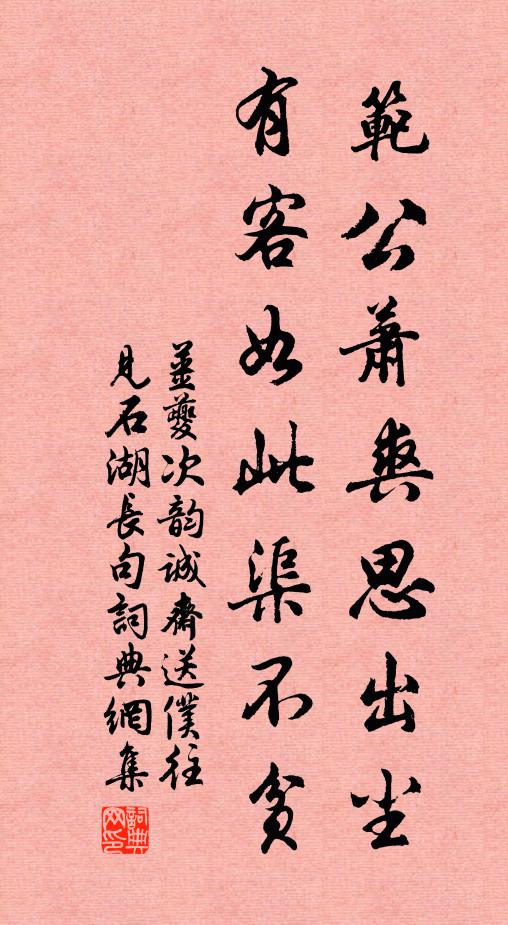 範公蕭爽思出尘
有客如此渠不貧
薑夔次韵誠齋送僕往
見石湖長句詞典網集
詞典
网印